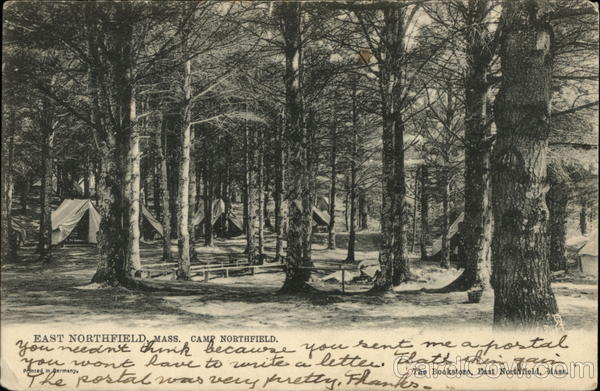 EAST NORTHFIELD, MASS. CAMP NORTHFIELD.
You needn't think because you sent me a postal
Printed in Germany
you wont have to write a letter. That's thin
The Bookstore, East Northfield, Mass.
The postal was very pretty, Thanks.